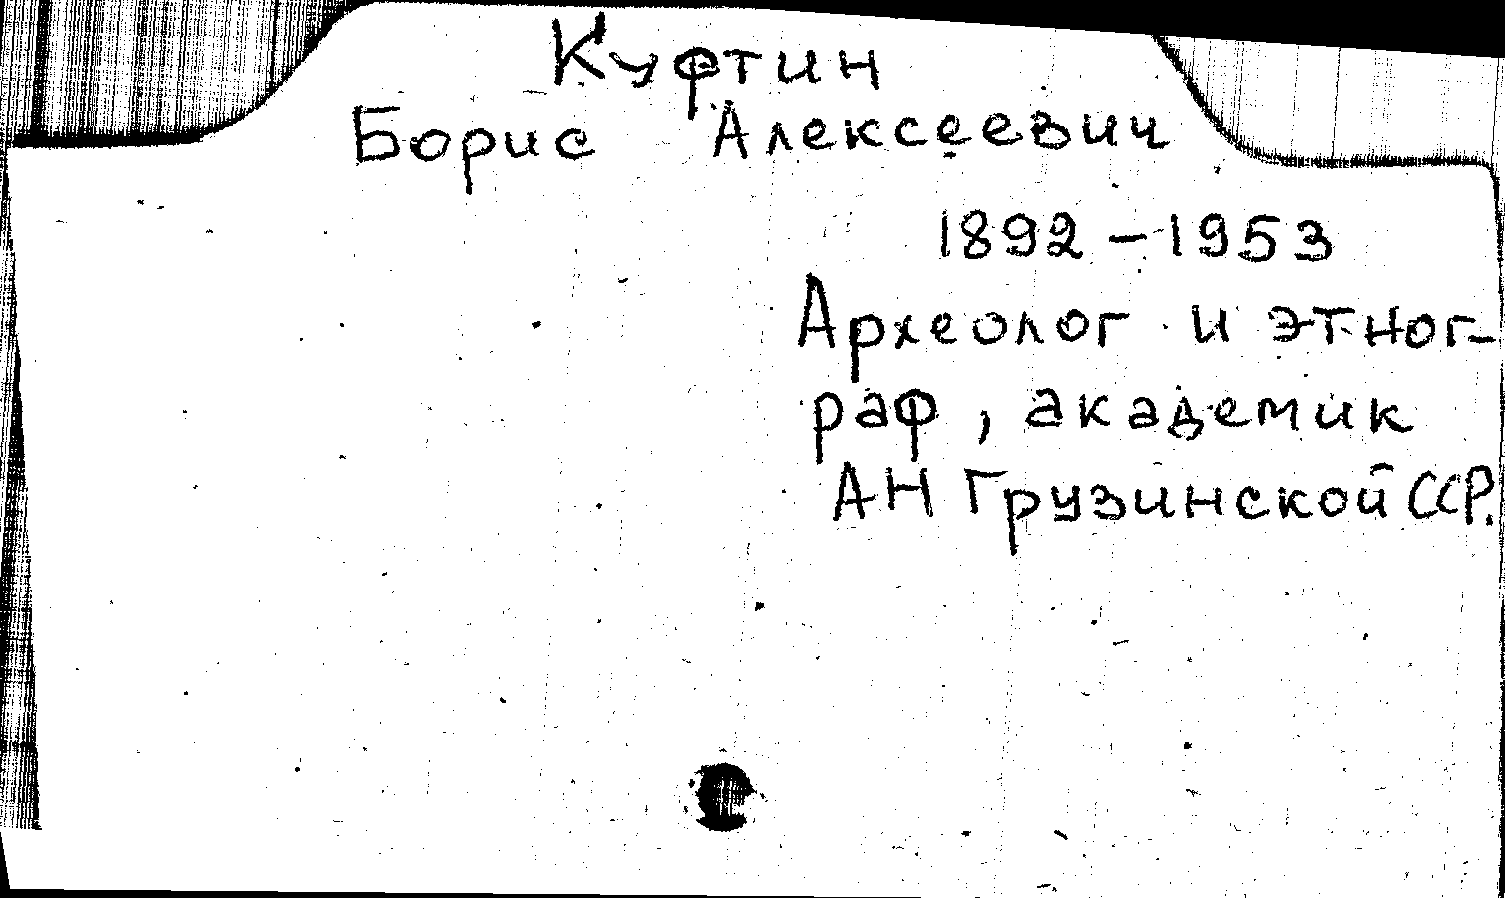 Куфтин
Борис Алексеевич
1892 – 1953
Археолог и этног-
раф, академик
АН Грузинской ССР.